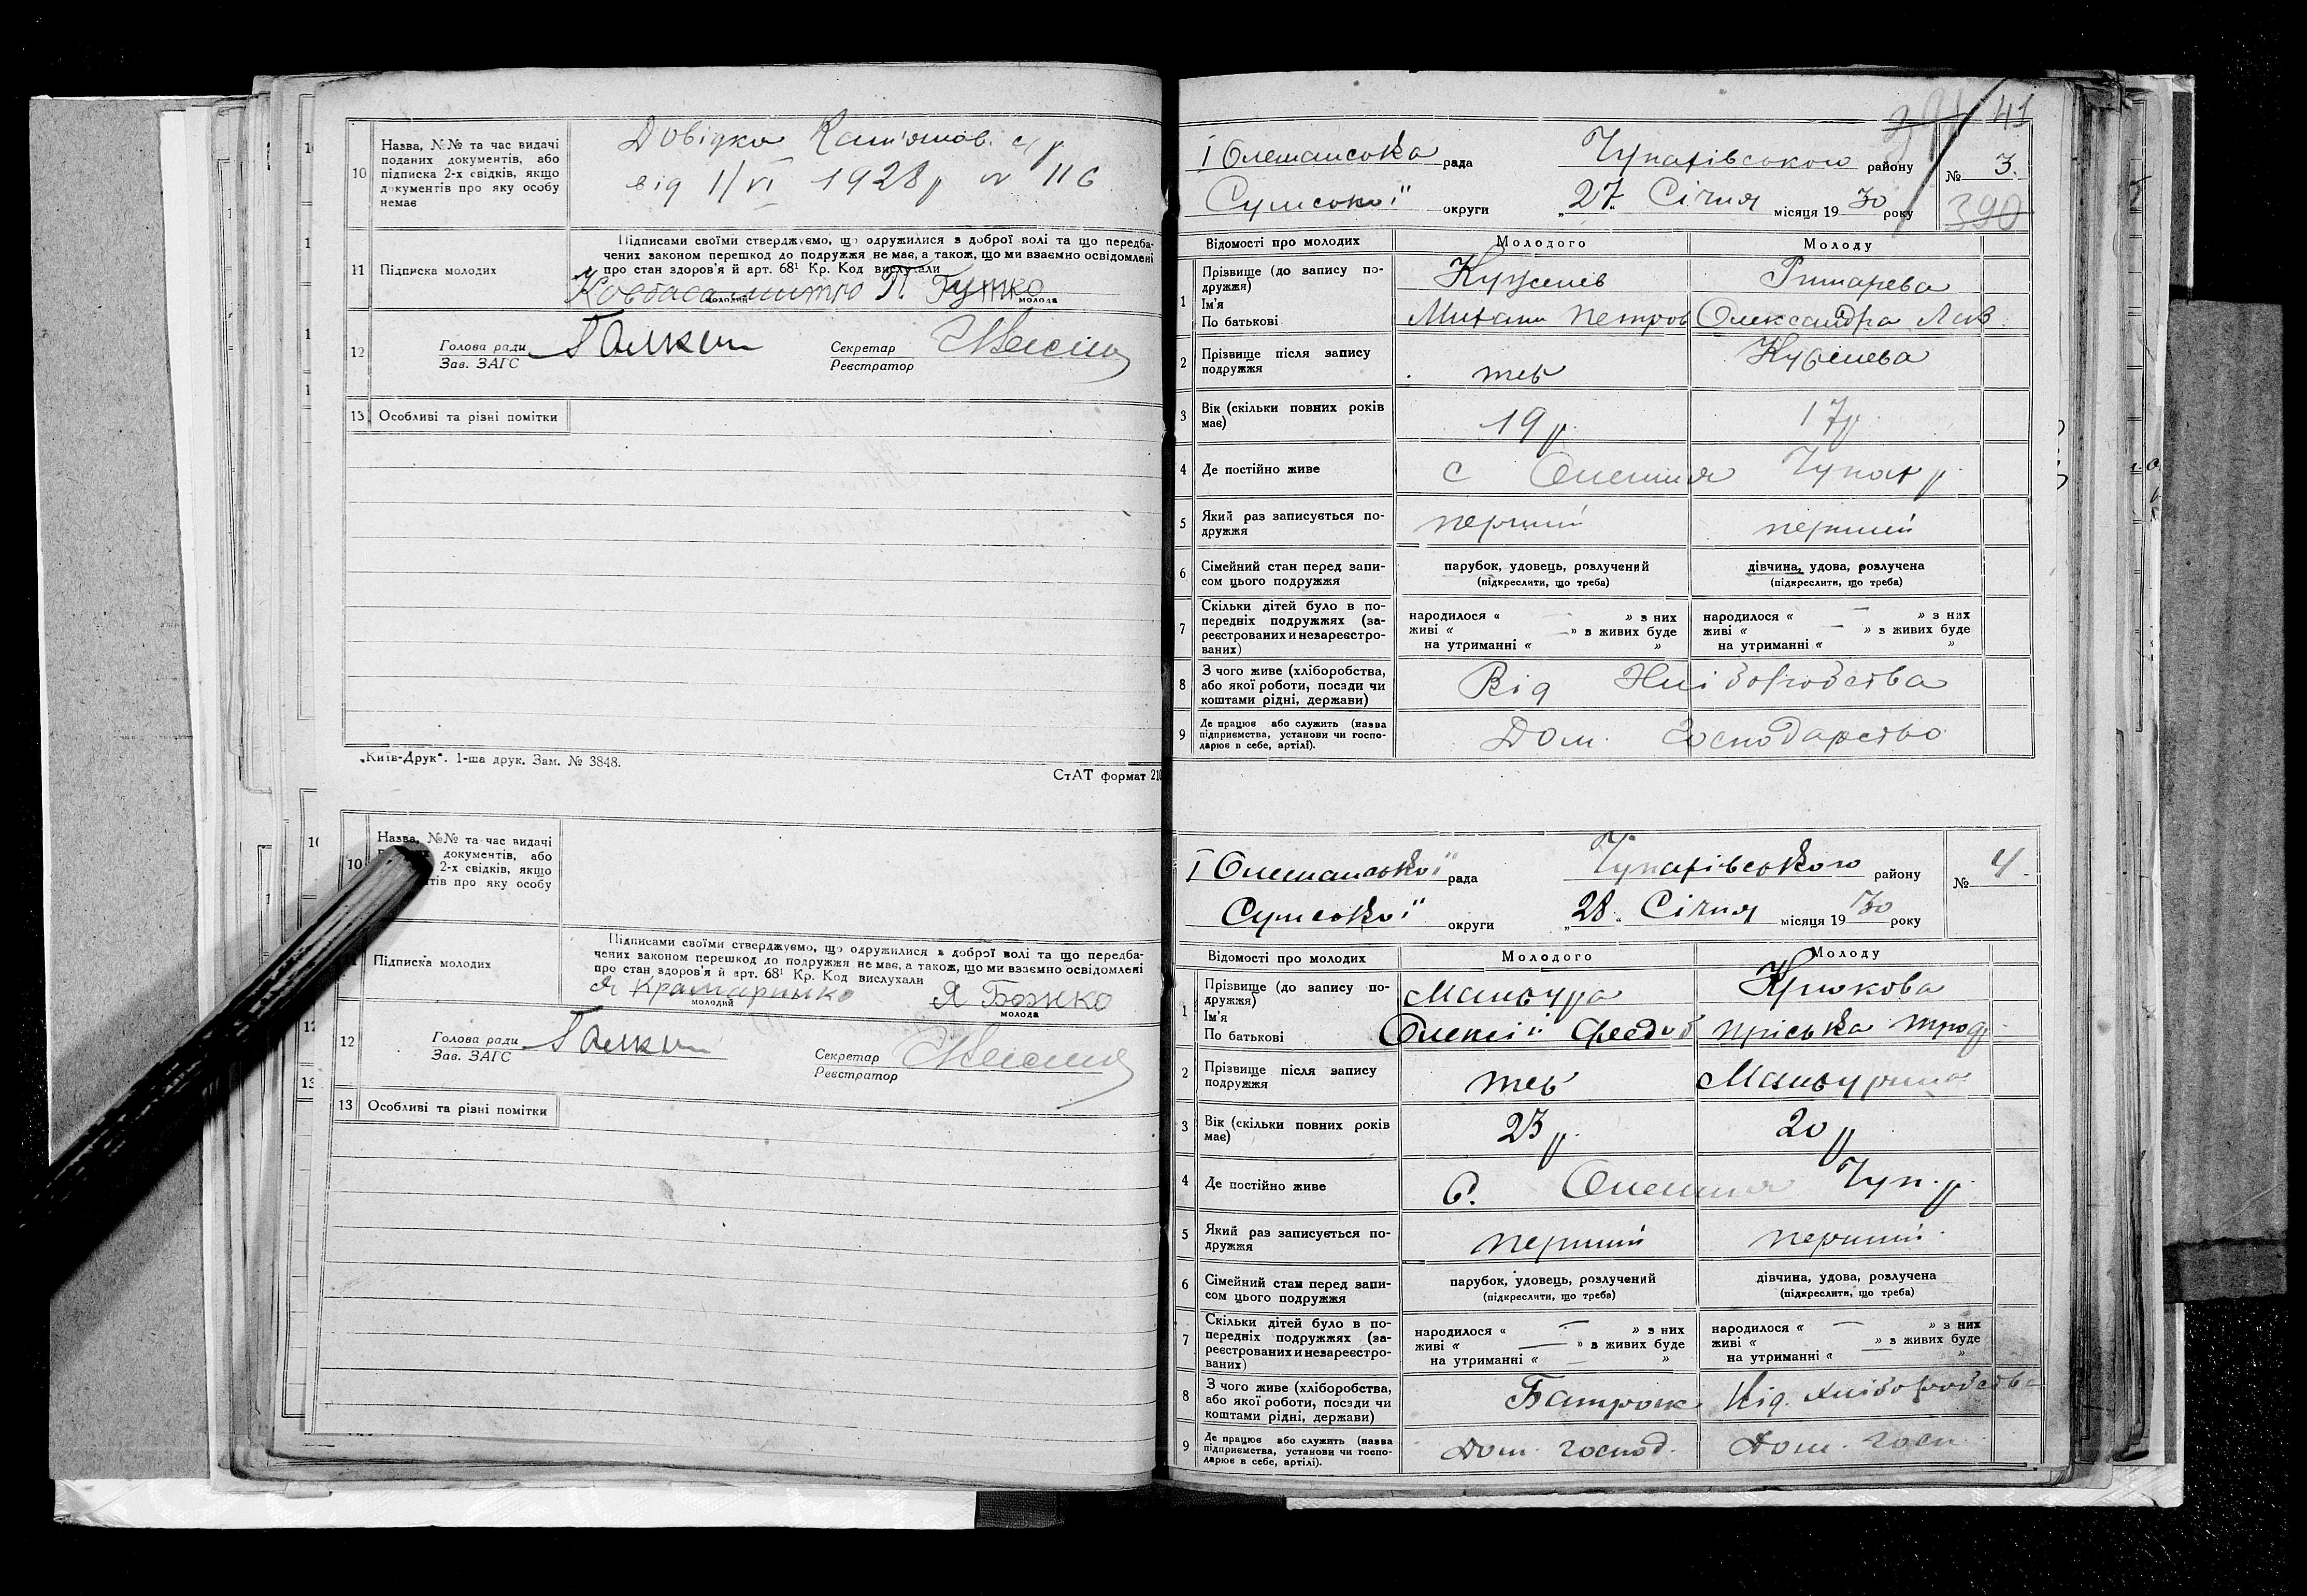 10 Назва, №№ та час видачі
поданих документів, або
підписка 2-х свідків, якщо
документів про яку особу
немає
Довідка
від 1/VI 1928 р № 116
11 Підписка молодих
Підписами своїми стверджуємо, що одружилися з доброї волі та що передба-
чених законом перешкод до подружжя не має, а також, що ми взаємно освідомлені
про стан здоров'я й арт. 68¹ Кр. Код вислухали
Ковбаса П Гутко
молодий молода
12 Голова ради Галкин Секретар
Зав. ЗАГС Реєстратор
13 Особливі та різні помітки
„Київ-Друк“. 1-ша друк. Зам. № 3848.
СтАТ формат 210
10 Назва, №№ та час видачі
документів, або
2-х свідків, якщо
тів про яку особу
Підписка молодих
Підписами своїми стверджуємо, що одружилися з доброї волі та що передба-
чених законом перешкод до подружжя не має, а також, що ми взаємно освідомлені
про стан здоров'я й арт. 68¹ Кр. Код вислухали
Я Крамаринко Я Божко
молодий молода
12 Голова ради Галкин Секретар
Зав. ЗАГС Реєстратор
13 Особливі та різні помітки
41
І Олешанська рада Чупахівського району № 3.
Сумської округи „27“ Січня місяця 1930 року
390
Відомості про молодих Молодого Молоду
1 Прізвище (до запису по-
дружжя)
Ім'я
По батькові
Римарева
Петров Олександра
2 Прізвище після запису
подружжя
теж
3 Вік (скільки повних років
має)
19 р. 17 р.
4 Де постійно живе
с Олешня Чупах р.
5 Який раз записується по-
дружжя
перший перший
6 Сімейний стан перед запи-
сом цього подружжя
парубок, удовець, розлучений дівчина, удова, розлучена
(підкреслити, що треба) (підкреслити, що треба)
7 Скільки дітей було в по-
передніх подружжях (за-
реєстрованих и незареєстро-
ваних)
народилося « — » з них народилося « — » з них
живі « — » в живих буде живі « — » в живих буде
на утриманні « » на утриманні « »
8 З чого живе (хліборобства,
або якої роботи, посади чи
коштами рідні, держави)
Від Хліборобства
9 Де працює або служить (назва
підприємства, установи чи госпо-
дарює в себе, артілі).
Дом. Господарство
І Олешанської рада Чупахівського району № 4.
Сумської округи „28“ Січня місяця 1930 року
Відомості про молодих Молодого Молоду
1 Прізвище (до запису по-
дружжя)
Ім'я
По батькові
Маньчра Крюкова
Олексій Федов Пріська Трод
2 Прізвище після запису
подружжя
теж
3 Вік (скільки повних років
має)
23 р. 20 р
4 Де постійно живе
С. Олешня Чуп. р.
5 Який раз записується по-
дружжя
перший перший
6 Сімейний стан перед запи-
сом цього подружжя
парубок, удовець, розлучений дівчина, удова, розлучена
(підкреслити, що треба) (підкреслити, що треба)
7 Скільки дітей було в по-
передніх подружжях (за-
реєстрованих и незареєстро-
ваних)
народилося « — » з них народилося « — » з них
живі « — » в живих буде живі « — » в живих буде
на утриманні « — » на утриманні « »
8 З чого живе (хліборобства,
або якої роботи, посади чи
коштами рідні, держави)
Батрак Від. хліборобства
9 Де працює або служить (назва
підприємства, установи чи госпо-
дарює в себе, артілі).
Дом. господ. Дом. госп